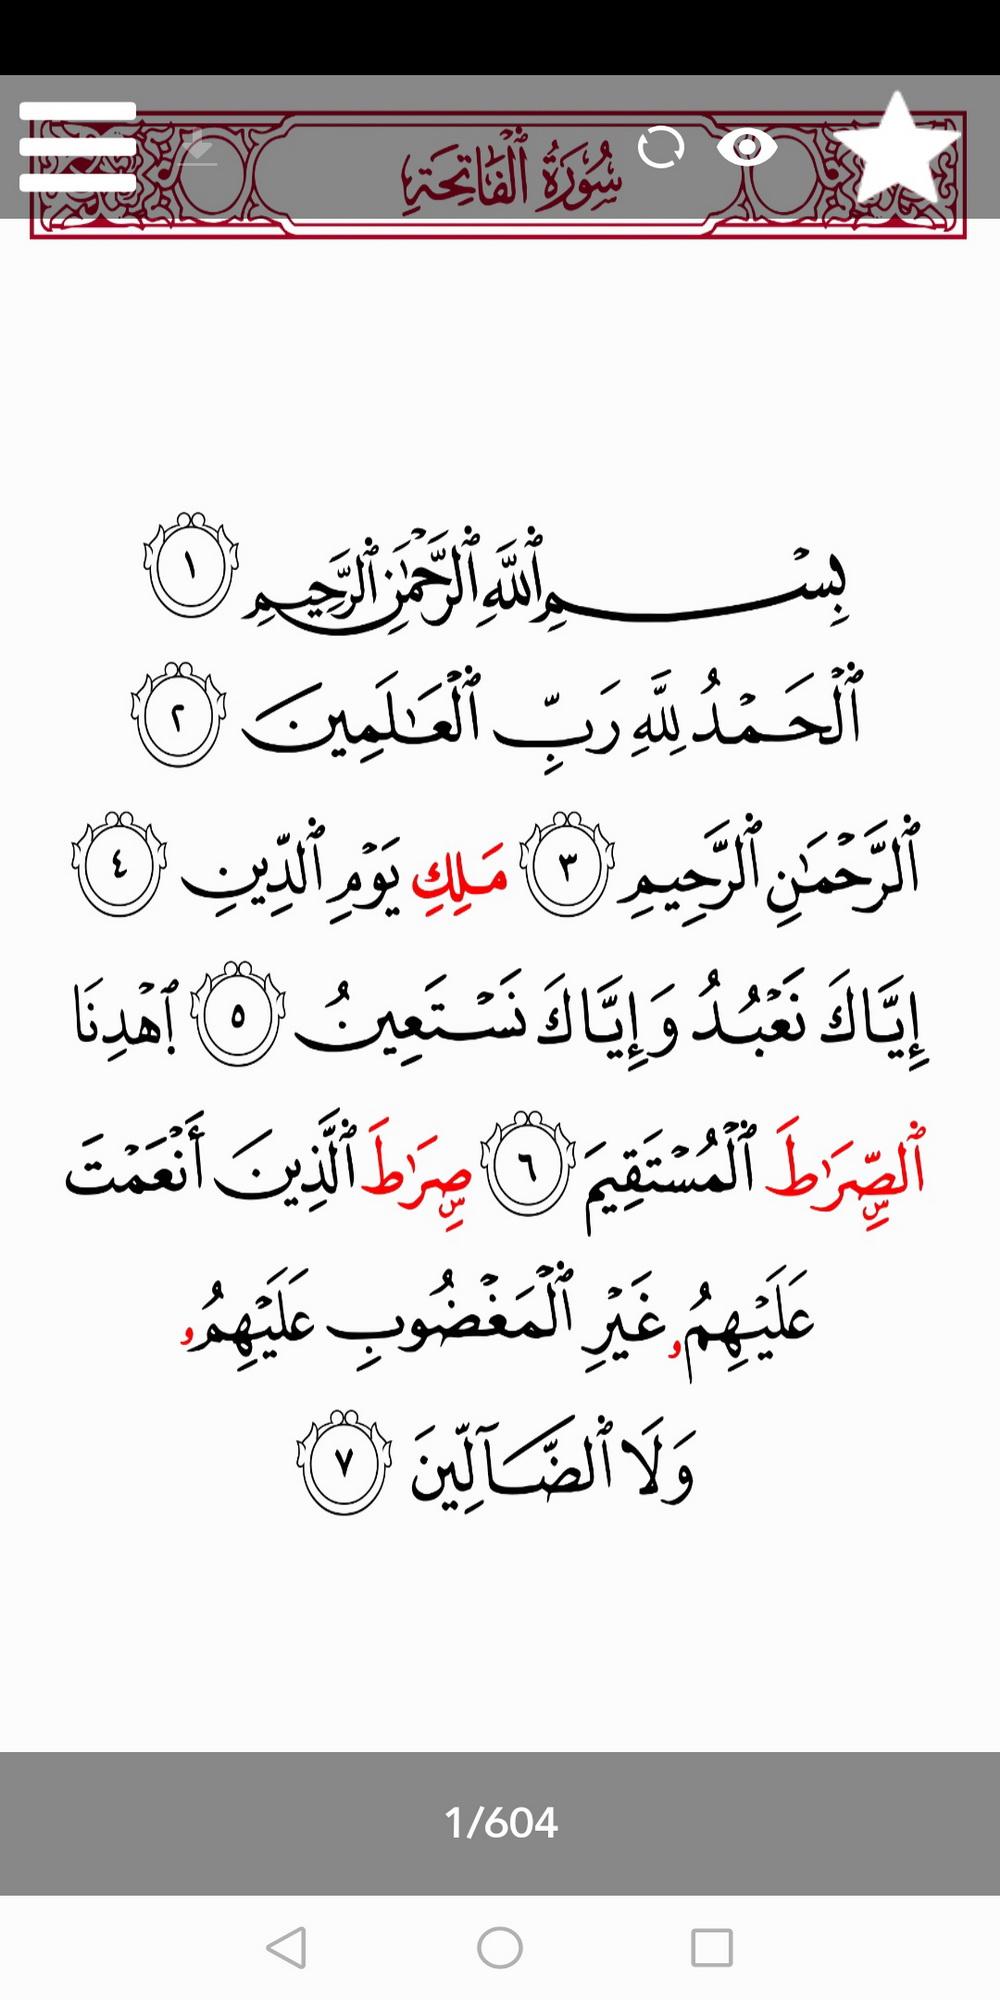 سُورَةُ ٱلْفَاتِحَةِ
بِسْمِ ٱللَّهِ ٱلرَّحْمَٰنِ ٱلرَّحِيمِ ١
ٱلْحَمْدُ لِلَّهِ رَبِّ ٱلْعَٰلَمِينَ ٢
ٱلرَّحْمَٰنِ ٱلرَّحِيمِ ٣ مَلِكِ يَوْمِ ٱلدِّينِ ٤
إِيَّاكَ نَعْبُدُ وَإِيَّاكَ نَسْتَعِينُ ٥ ٱهْدِنَا
ٱلصِّرَٰطَ ٱلْمُسْتَقِيمَ ٦ صِرَٰطَ ٱلَّذِينَ أَنْعَمْتَ
عَلَيْهِمُۥ غَيْرِ ٱلْمَغْضُوبِ عَلَيْهِمُۥ
وَلَا ٱلضَّآلِّينَ ٧
1/604